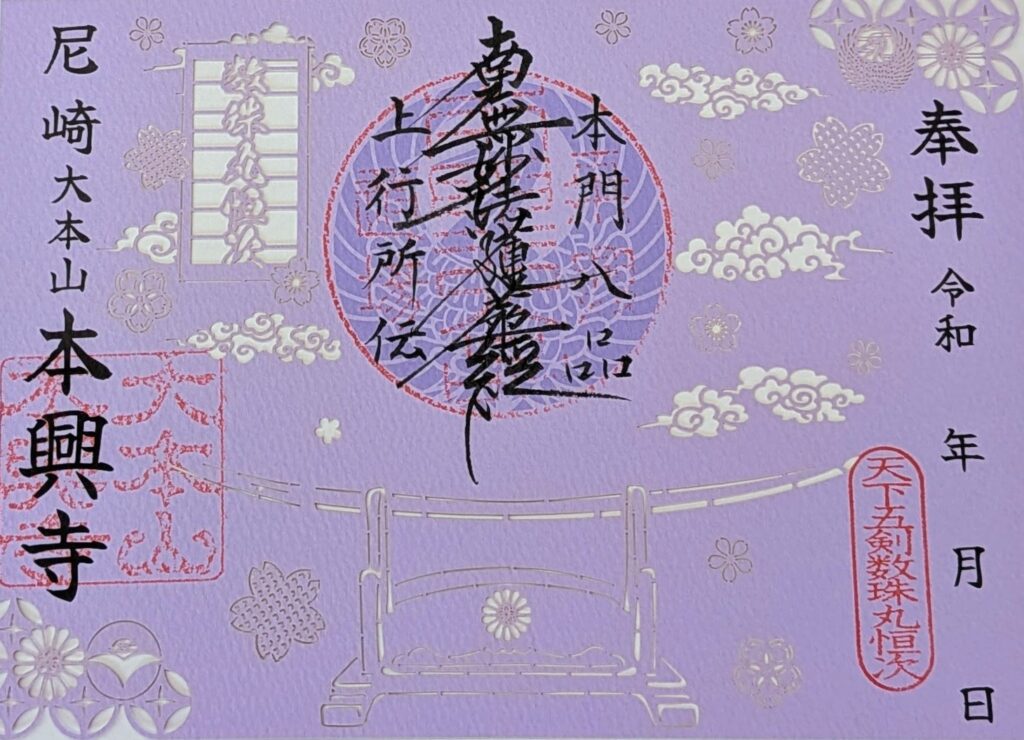 奉拝 令和 年 月 日
天下五剣数珠丸恒次
本門八品
南無妙法蓮華経
上行所伝
数珠丸恒次
尼崎大本山本興寺
大本山
本興寺